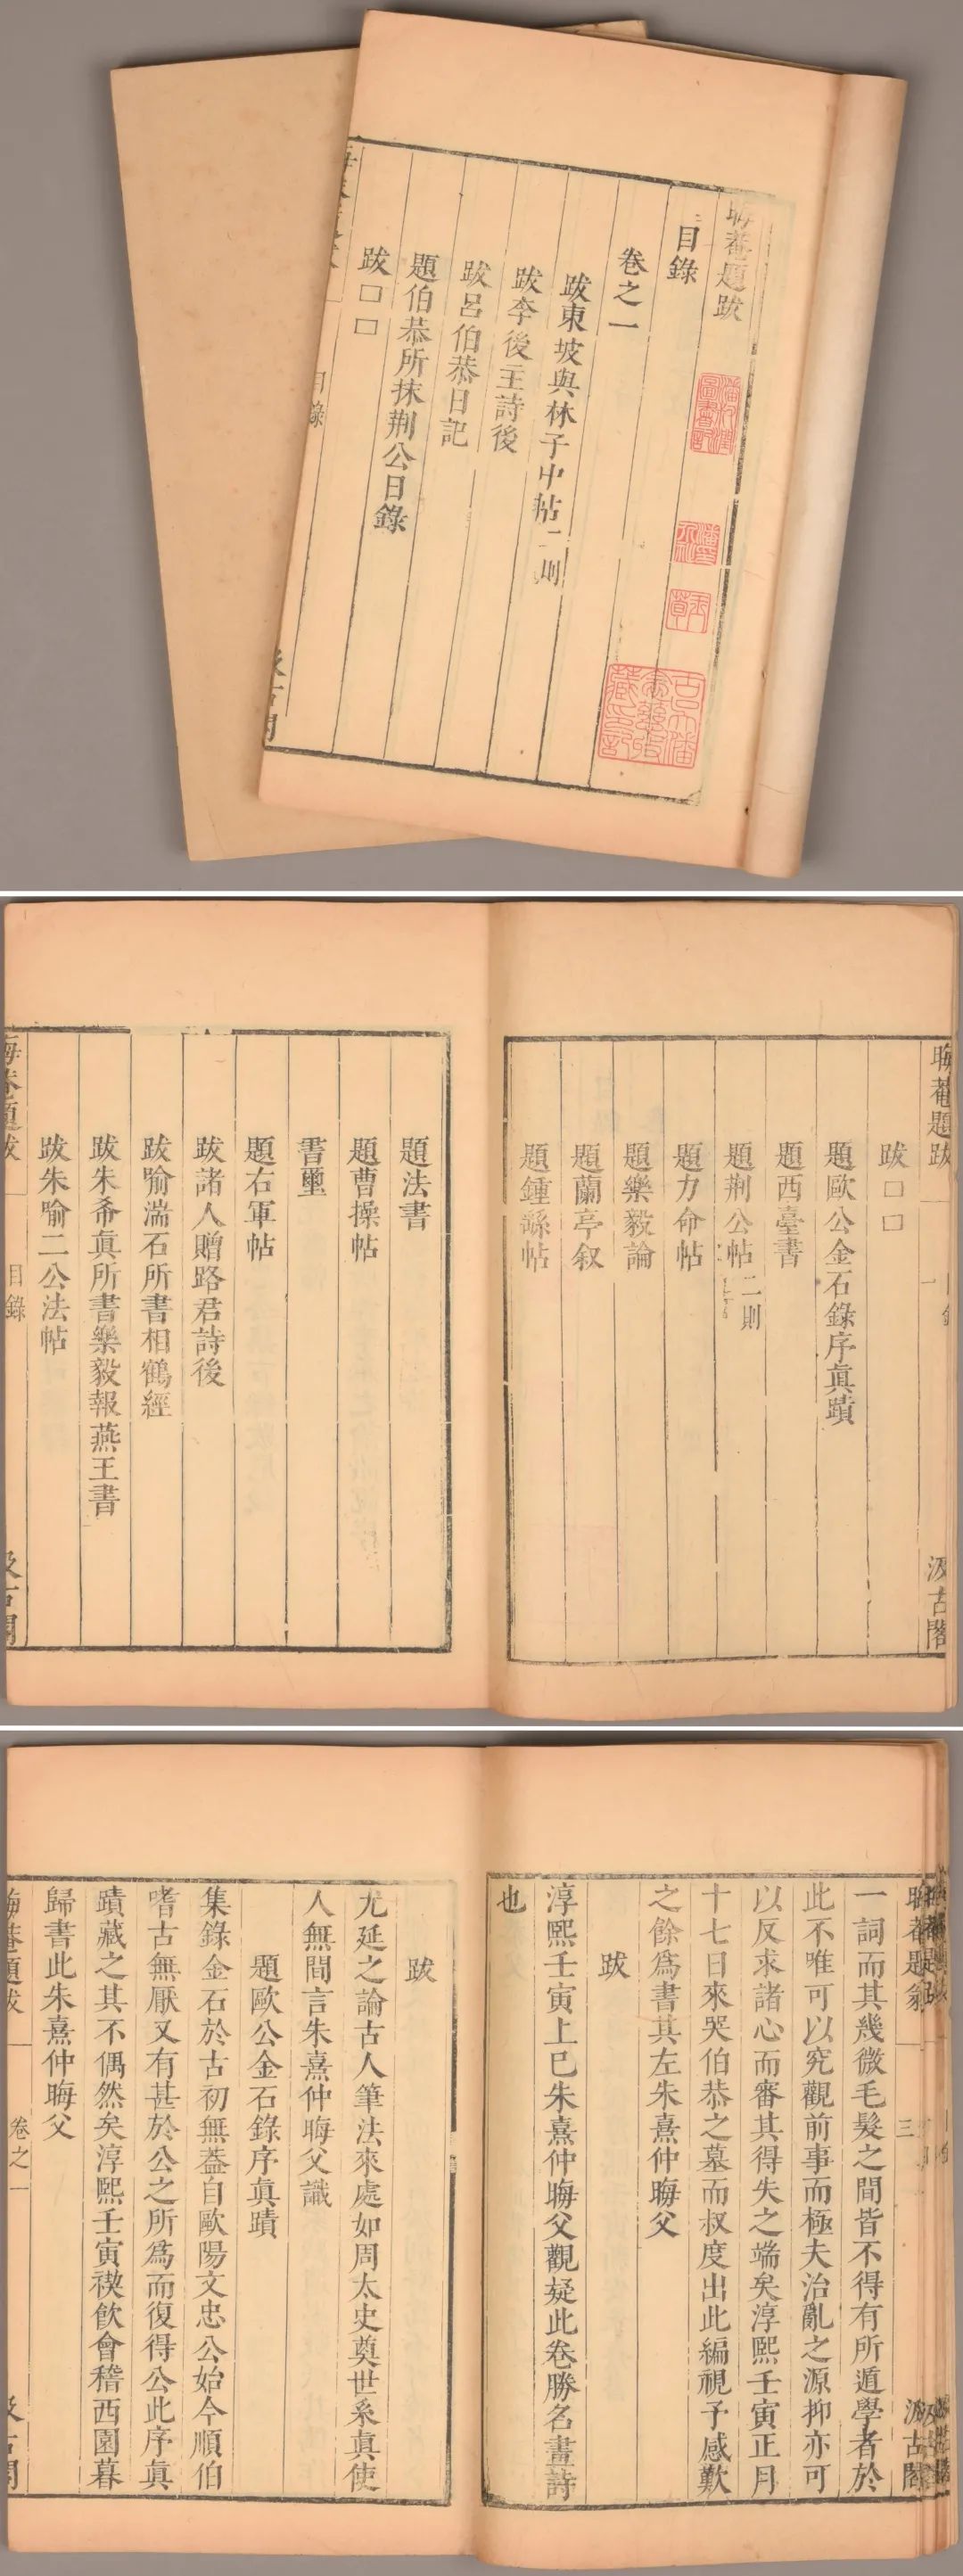 晦菴題跋
目錄
卷之一
跋東坡與林子中帖二則
跋李後主詩後
跋呂伯恭日記
題伯恭所抹荆公日錄
跋□□
目錄
汲古閣
晦菴題跋
目錄
一
汲古閣
跋□□
題歐公金石錄序眞蹟
題西臺書
題荆公帖二則
題力命帖
題樂毅論
題蘭亭叙
題鍾繇帖
題法書
題曹操帖
書壐
題右軍帖
跋諸人贈路君詩後
跋喻湍石所書相鶴經
跋朱希眞所書樂毅報燕王書
跋朱喻二公法帖
晦菴題跋
目錄
汲古閣
三
汲古閣
一詞而其幾微毛髮之間皆不得有所遁學者於
此不唯可以究觀前事而極夫治亂之源抑亦可
以反求諸心而審其得失之端矣淳熙壬寅正月
十七日來哭伯恭之墓而叔度出此編視予感歎
之餘爲書其左朱熹仲晦父
跋
淳熙壬寅上巳朱熹仲晦父觀疑此卷勝名畫詩
也
跋
尤延之論古人筆法來處如周太史奠世系眞使
人無間言朱熹仲晦父識
題歐公金石錄序眞蹟
集錄金石於古初無葢自歐陽文忠公始今順伯
嗜古無厭又有甚於公之所爲而復得公此序眞
蹟藏之其不偶然矣淳熙壬寅禊飮會稽西園暮
歸書此朱熹仲晦父
晦菴題跋
卷之一
汲古閣